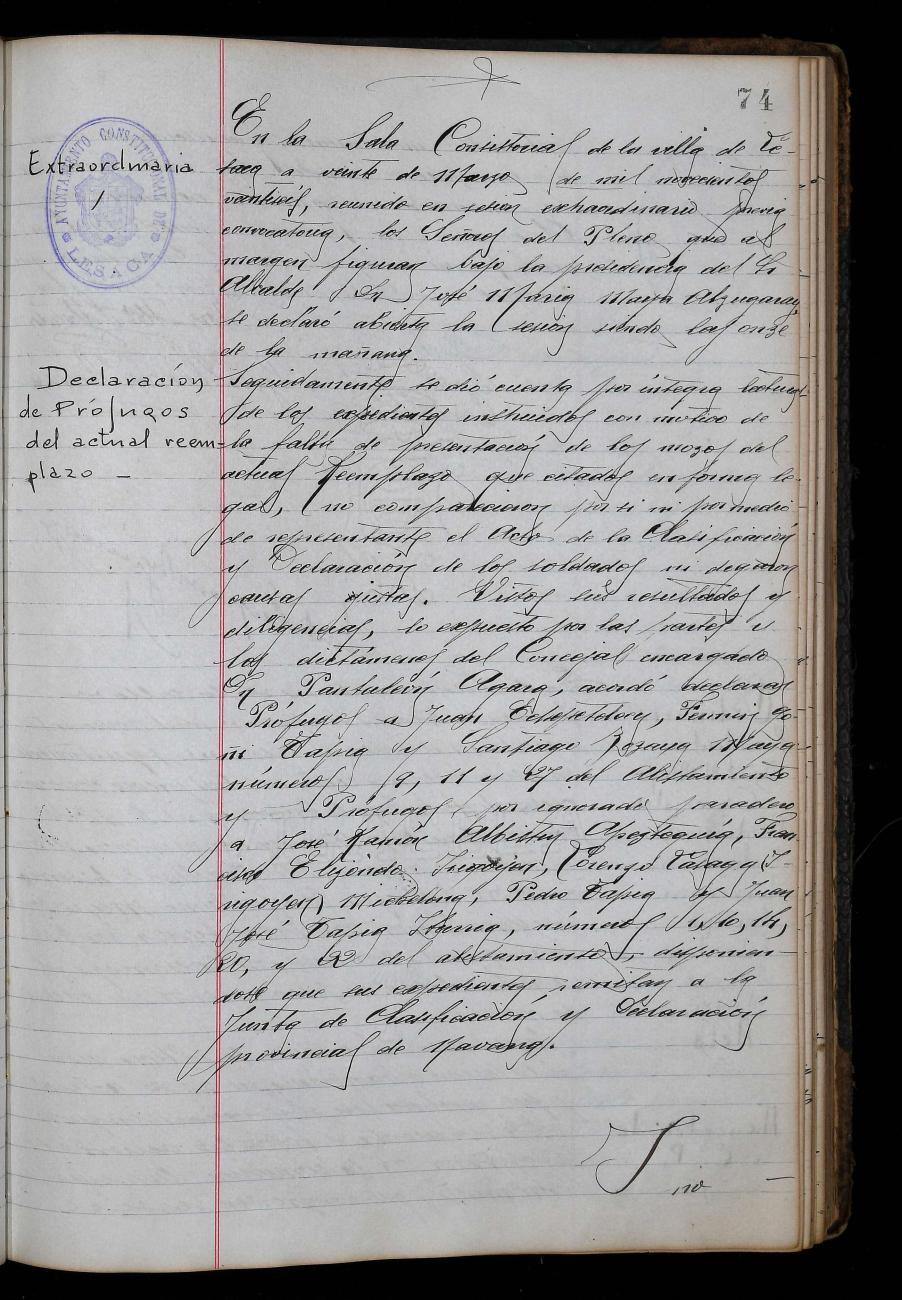 74
AYUNTAMIENTO CONSTITUCIONAL DE
LESACA
Extraordinaria
En la Sala Consistorial de la villa de Le-
saca a veinte de Marzo de mil novecientos
veintiseis, reunido en sesion extraordinaria previa
convocatoria, los Señores del Pleno que al
margen figuran bajo la presidencia del Sr
Alcalde Dn José Maria Maya Abzugaray,
se declaró abierta la sesion siendo las onze
de la mañana.
Declaración
de Prófugos
del actual reem-
plazo -
Seguidamente se dió cuenta por integra lectura
de los expedientes instruidos con motivo de
la falta de presentación de los mozos del
actual Reemplazo que citados en forma le-
gal, no comparecieron por si ni por medio
de representante el Acto de la Clasificación
y Declaración de los soldados ni alegaron
causas justas. Vistos sus resultados y
diligencias, lo expuesto por las partes y
los dictámenes del Concejal encargado
Dn Pantaleón Agara, acordó declarar
Prófugos a Juan Fermin Go-
ñi Tapia y Santiago Jozaya Maya
números 9, 11 y 27 del Alistamiento
y Prófugos por ignorado paradero
a José Ramón Albistur Apezteguia, Fran-
cisco Elizondo Irigoyen, Lorenzo I-
rigoyen Michelena, Pedro Tapia y Juan
José Tapia números 1, 6, 14,
20, y 22 del alistamiento, disponien-
dose que sus expedientes remitan a la
Junta de Clasificación y Declaración
provincial de Navarra.